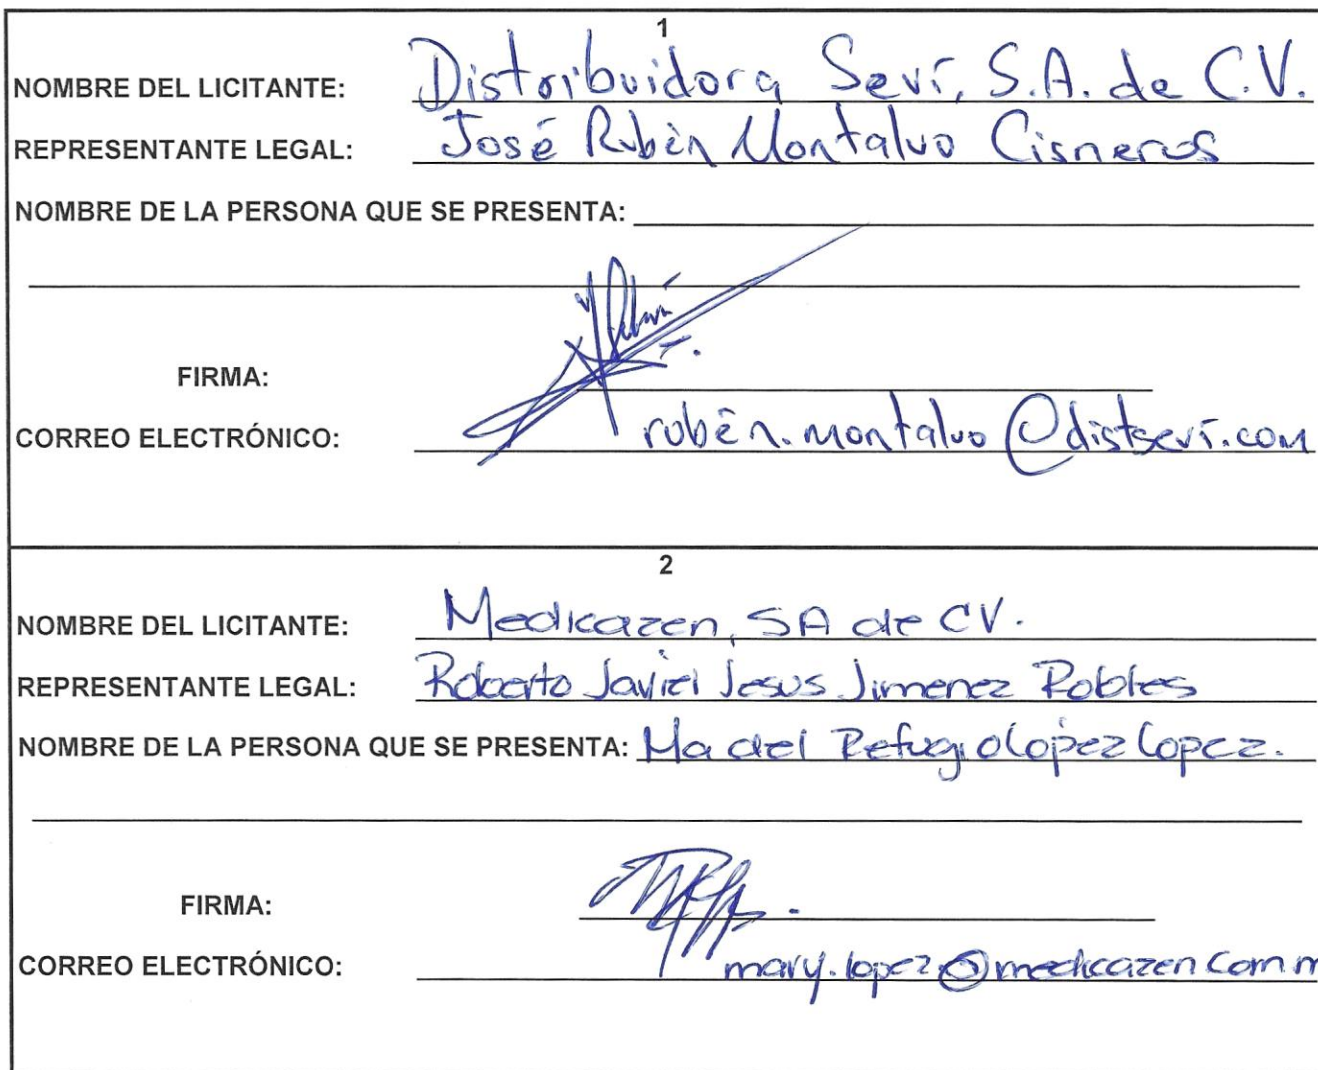 1
NOMBRE DEL LICITANTE: Distribuidora Seví, S.A. de C.V.
REPRESENTANTE LEGAL: José Rubén Montalvo Cisneros
NOMBRE DE LA PERSONA QUE SE PRESENTA:
FIRMA:
CORREO ELECTRÓNICO: rubén.montalvo@distseví.com
2
NOMBRE DEL LICITANTE: Medicazen, SA de CV.
REPRESENTANTE LEGAL: Roberto Javier Jesus Jimenez Robles
NOMBRE DE LA PERSONA QUE SE PRESENTA: Ma del Refugio Lopez Lopez.
FIRMA:
CORREO ELECTRÓNICO: mary.lopez@medicazen.com.m